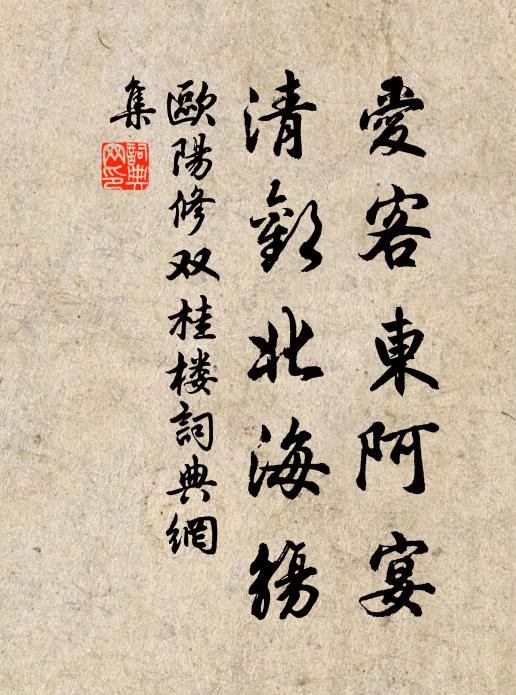 愛客東阿宴
清歡北海觴
歐陽修双桂楼詞典網
集
詞典網印